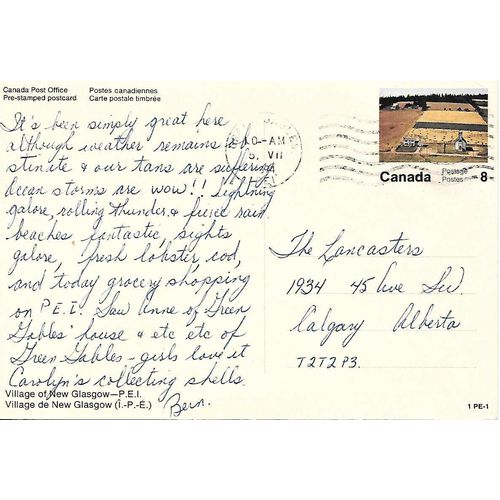 Canada Post Office
Pre-stamped postcard
Postes canadiennes
Carte postale timbrée
It's been simply great here
although weather remains
& our tans are suffering.
Ocean storms are wow!! Lightning
galore, rolling thunder & rain
beaches fantastic, sights
galore, fresh lobster, cod,
and today grocery shopping
on P.E.I. Saw Anne of Green
Gables' house & etc etc of
Green Gables - girls love it
Carolyn's collecting shells.
Bern.
Village of New Glasgow—P.E.I.
Village de New Glasgow (Î.-P.-É.)
0-AM
VII
Canada
Postage
Postes
8
The Lancasters
1934 45 Ave SW.
Calgary Alberta
T2T2P3.
1 PE-1